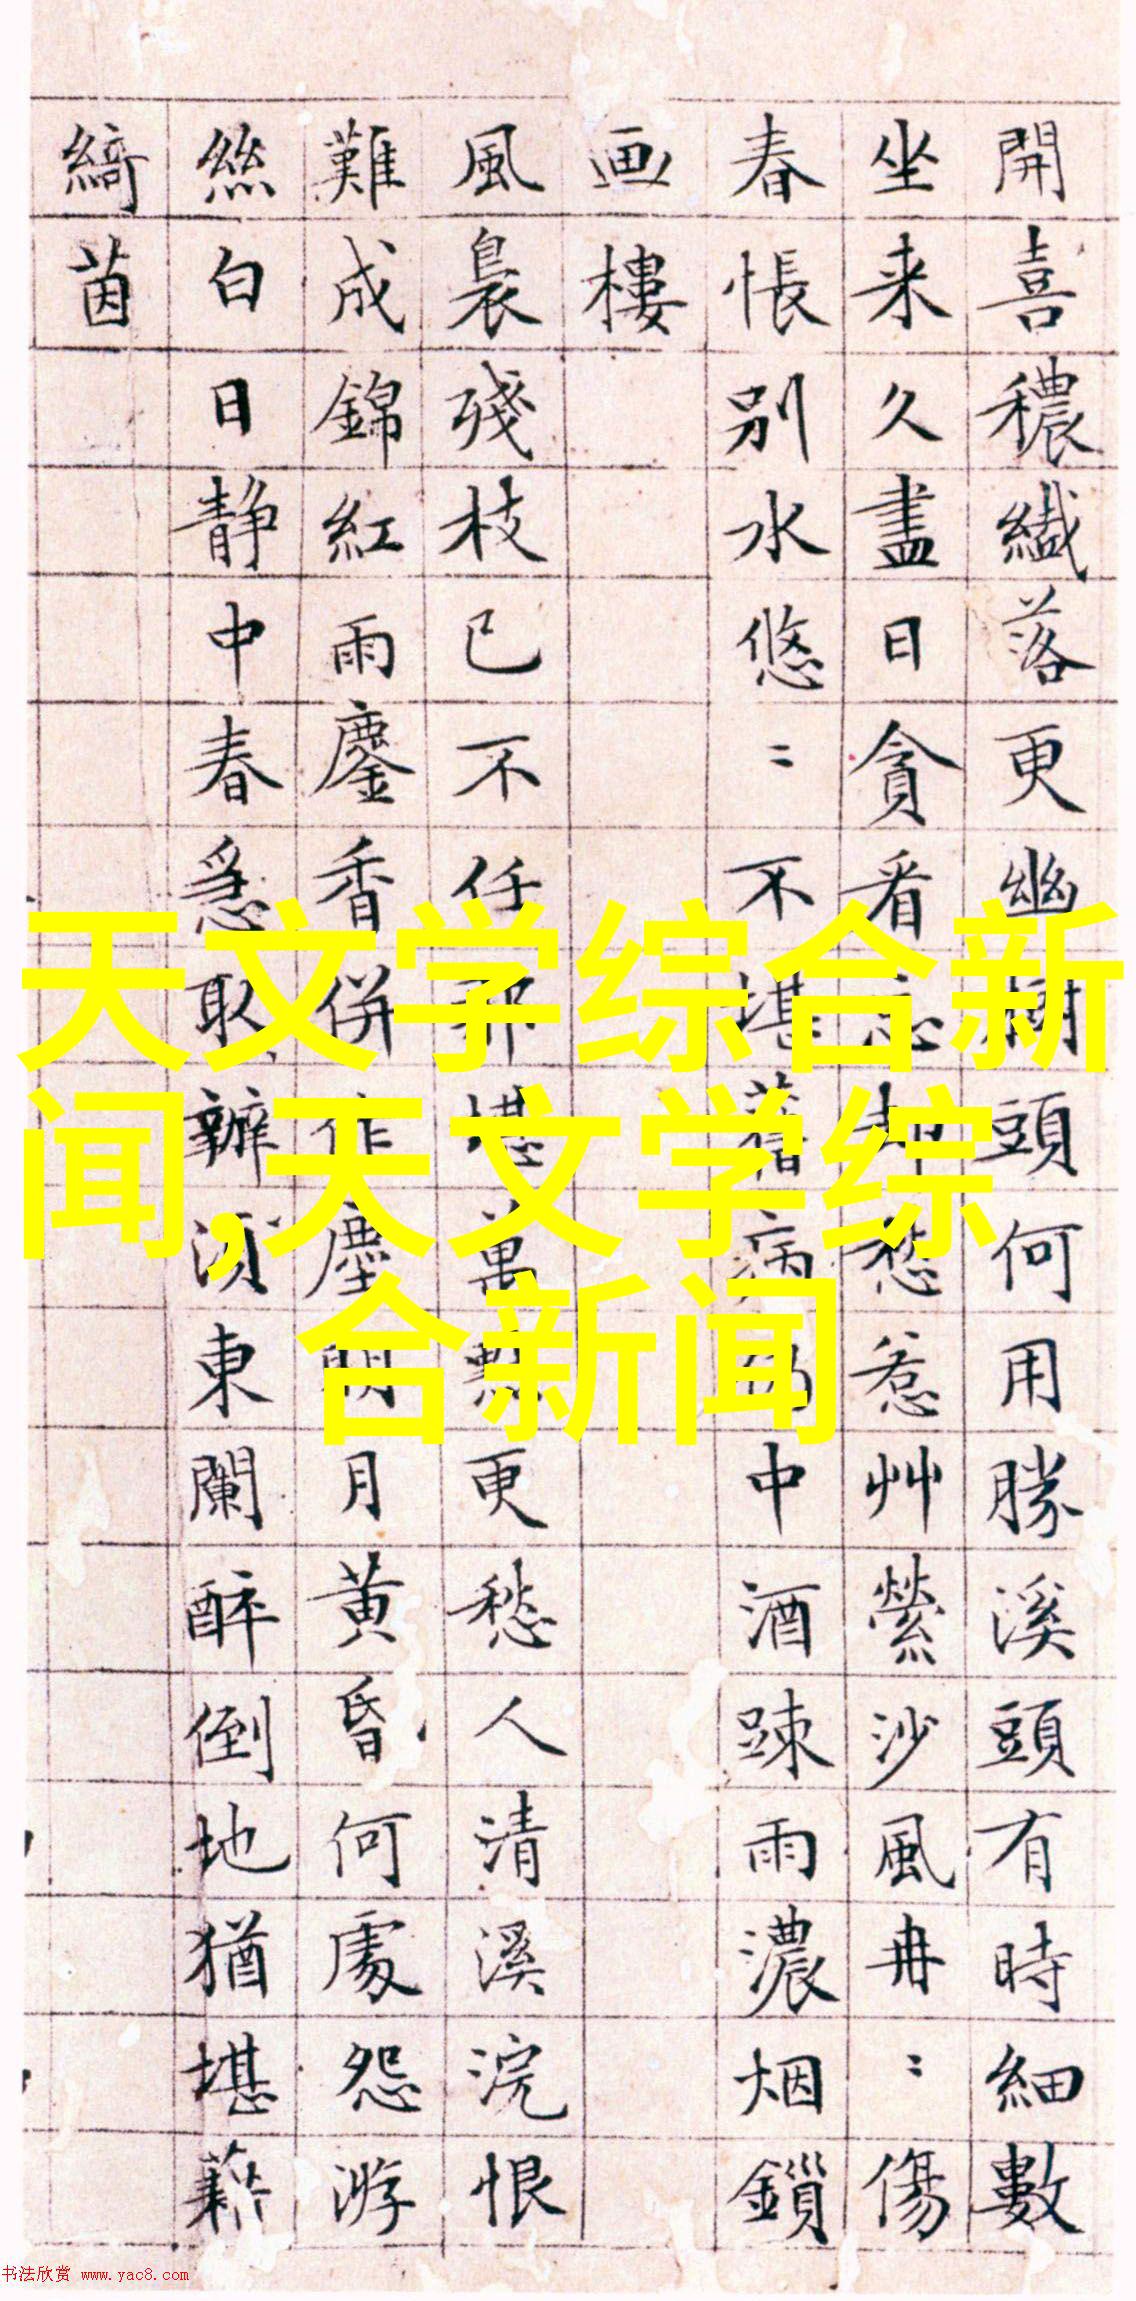 開喜穠纎落更幽樹頭何用勝溪頭有時細數
坐来久盡日貪看忘却愁惹艸縈沙風冉〻傷
春悵別水悠〻不堪舊病仍中酒踈雨濃烟鎖
画樓
風褭殘枝已不任那堪萬點更愁人清溪浣恨
難成錦紅雨鏖香併作塵明月黃昏何處怨游
絲白日静中春急取辦須東闌醉倒地猶堪藉
綺茵
天文学综合新
闻,天文学综
合新闻
书法欣赏 www.yac8.com